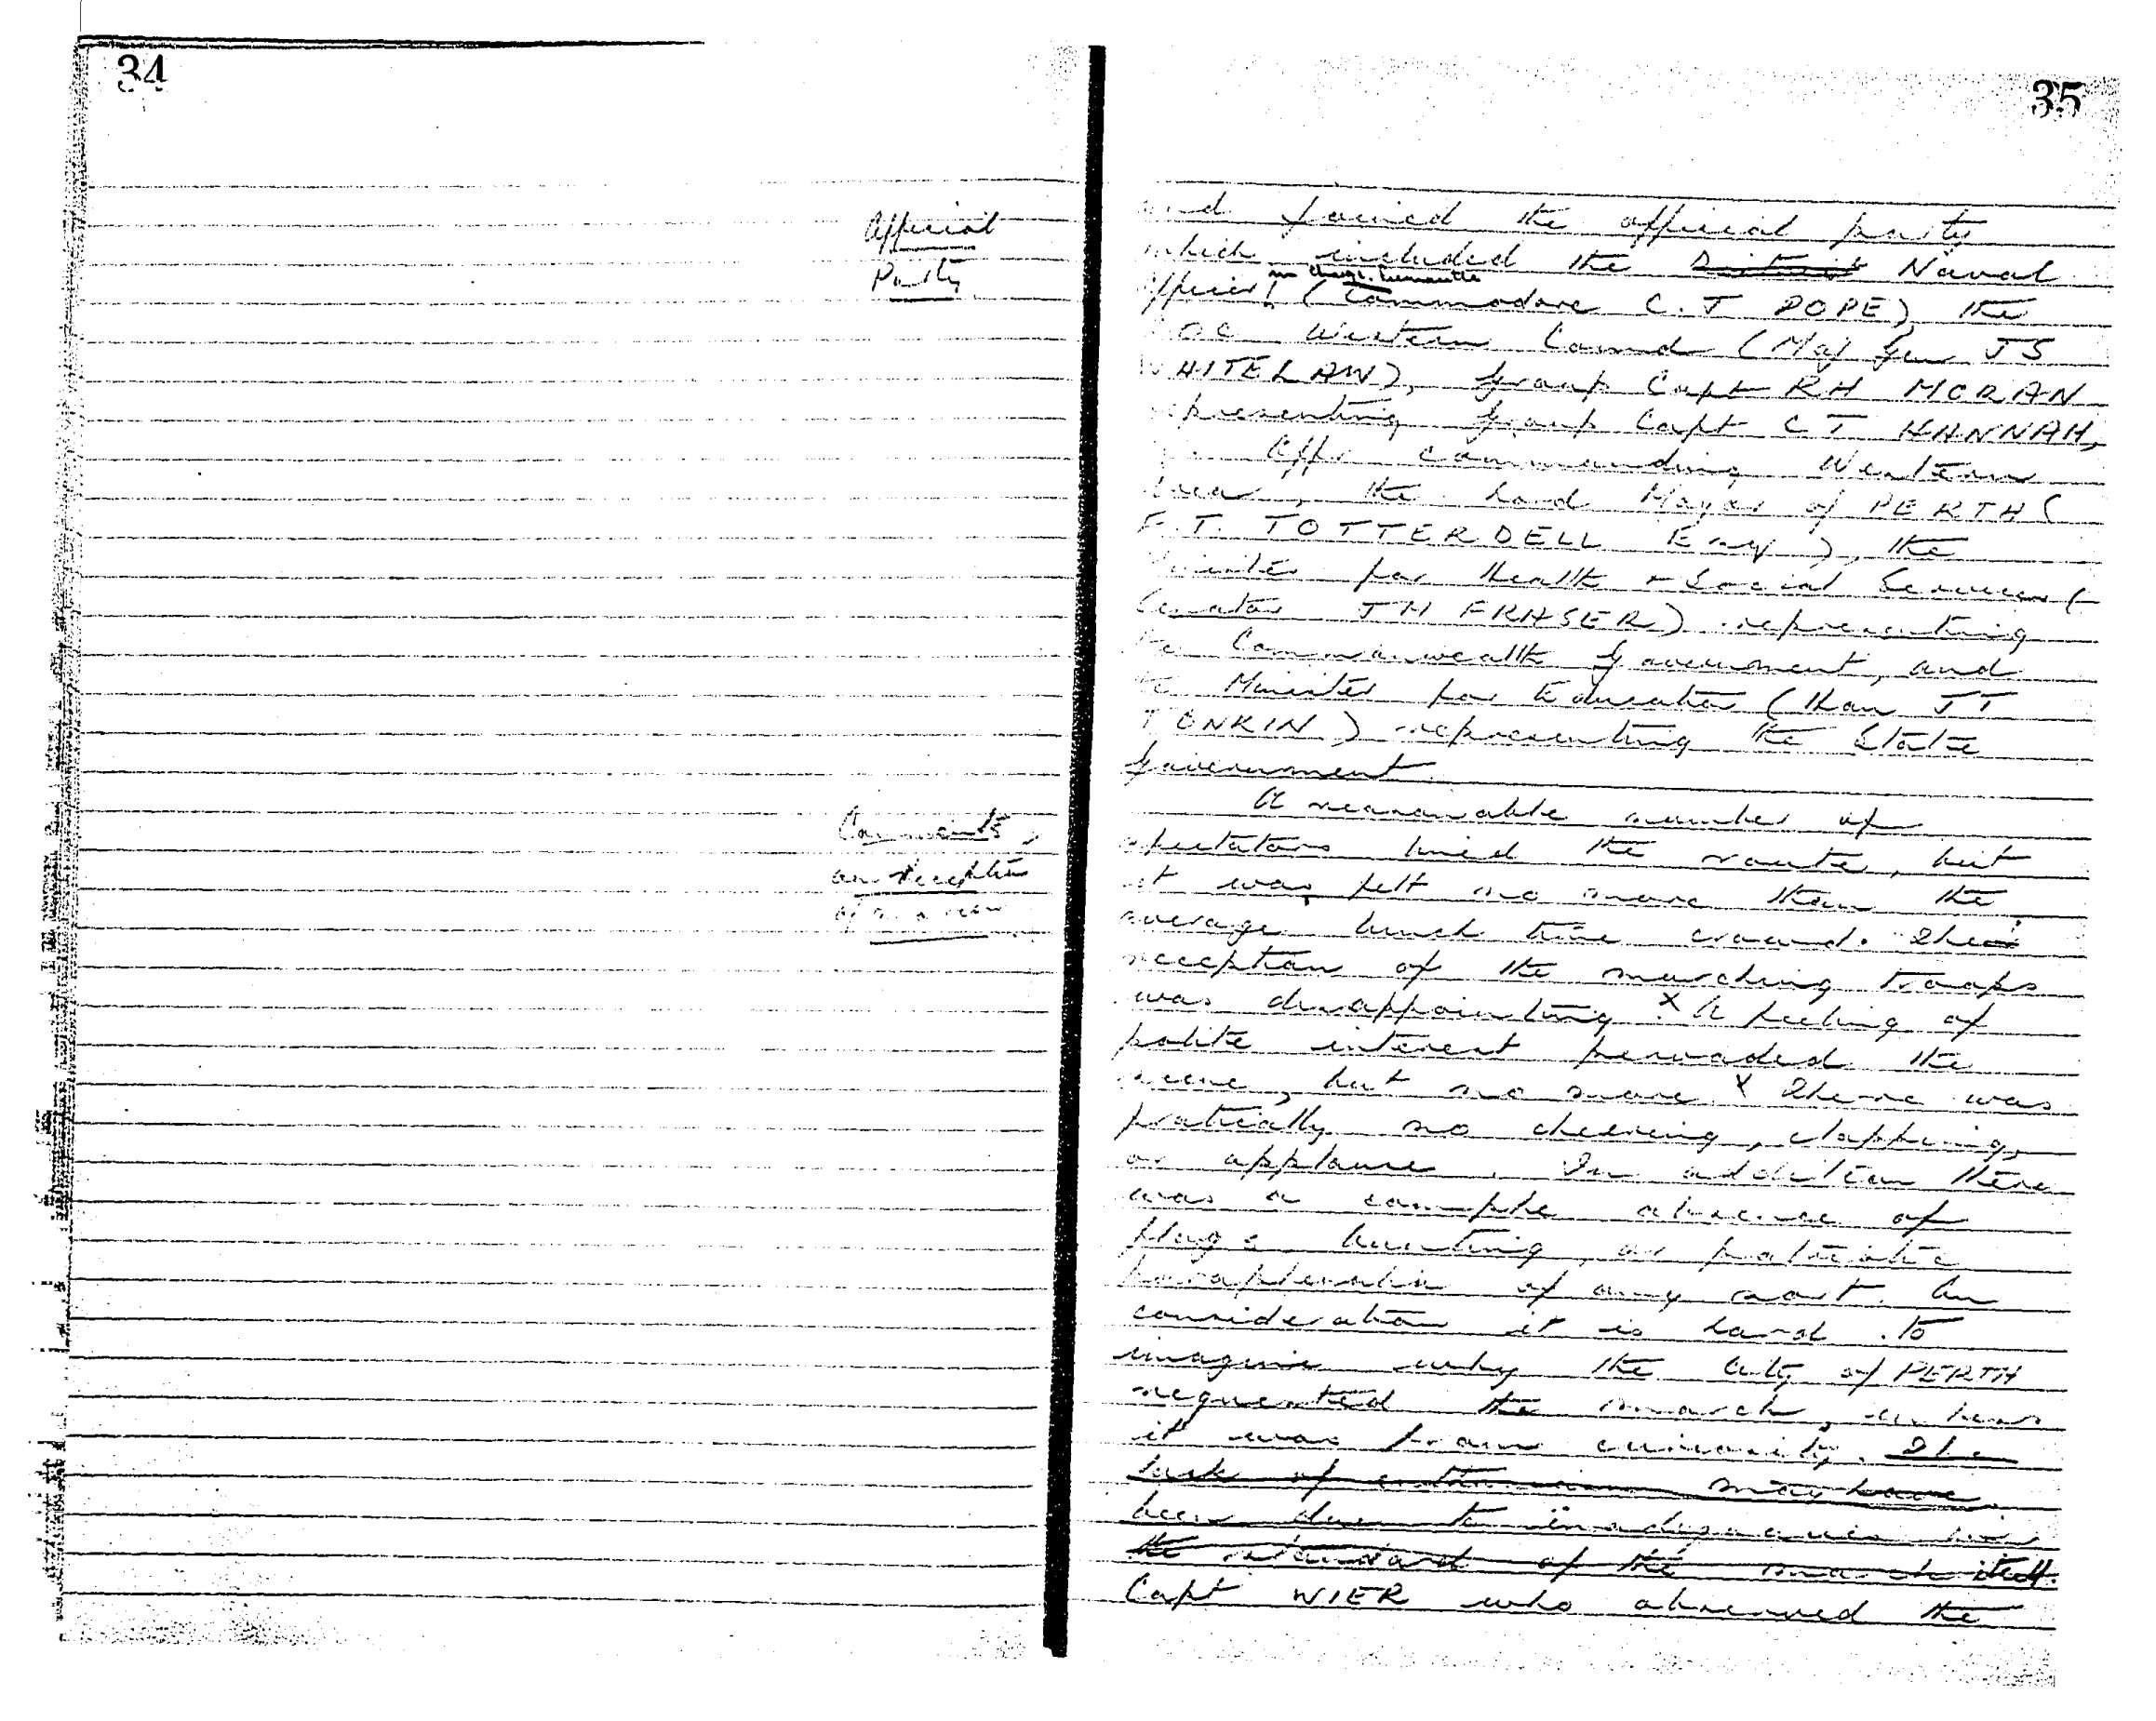 34
Official
Party
Comments
on reception
of
35
and joined the official party
which included the District Naval
Officer in charge Fremantle (Commodore C.T POPE), the
GOC Western Comnd (Maj Gen JS
WHITELAW), Group Capt RH MORAN
representing Group Capt CT HANNAH,
Offr commanding Western
Area, the Lord Mayor of PERTH (
F.T. TOTTERDELL Esq), the
Minister for Health & Social Services (
Senator JM FRASER) representing
the Commonwealth Government, and
the Minister for Education (Hon JT
TONKIN) representing the State
Government.
A reasonable number of
spectators lined the route, but
it was felt no more than the
average lunch time crowd. The
reception of the marching troops
was disappointing. x A feeling of
polite interest pervaded the
scene, but no more. x There was
pratically no cheering, clapping,
or applause. In addition there
was a complte absence of
flags bunting, or patriotic
paraphenalia of any sort. On
consideration it is hard to
imagine why the City of PERTH
requested the march, unless
it was from curiosity. The
lack of enthusiasm may have
been due to inadequacies in
the standard of the march itself.
Capt WIER who observed the